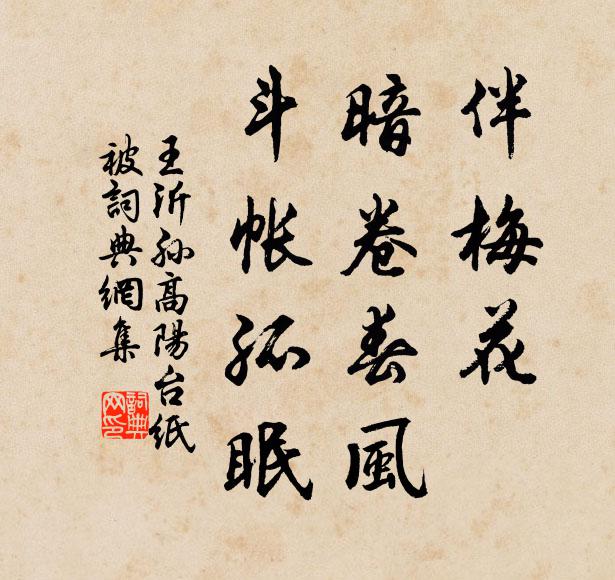 伴梅花
暗卷春風
斗帳孤眠
王沂孫高陽台紙
被詞典網集
詞典
网印